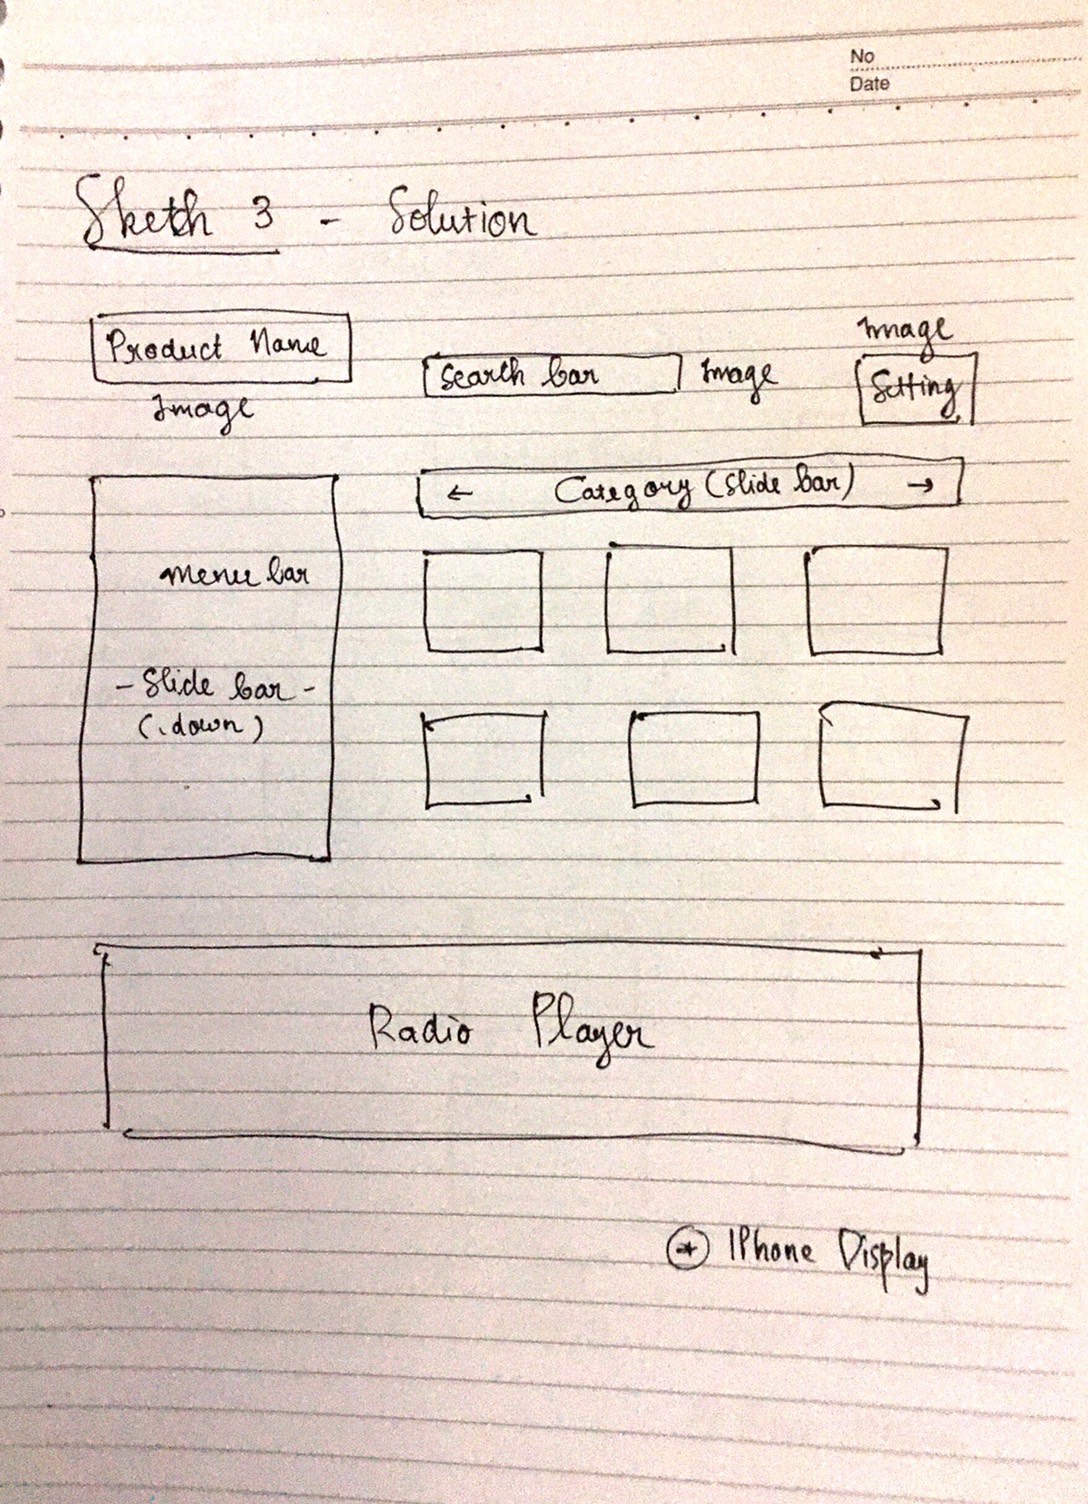 No
Date
Sketch 3 - Solution
Product Name
Image
Search bar
Image
Image
Setting
← Category (Slide bar) →
Menu bar
- Slide bar -
(.down)
Radio Player
* IPhone Display